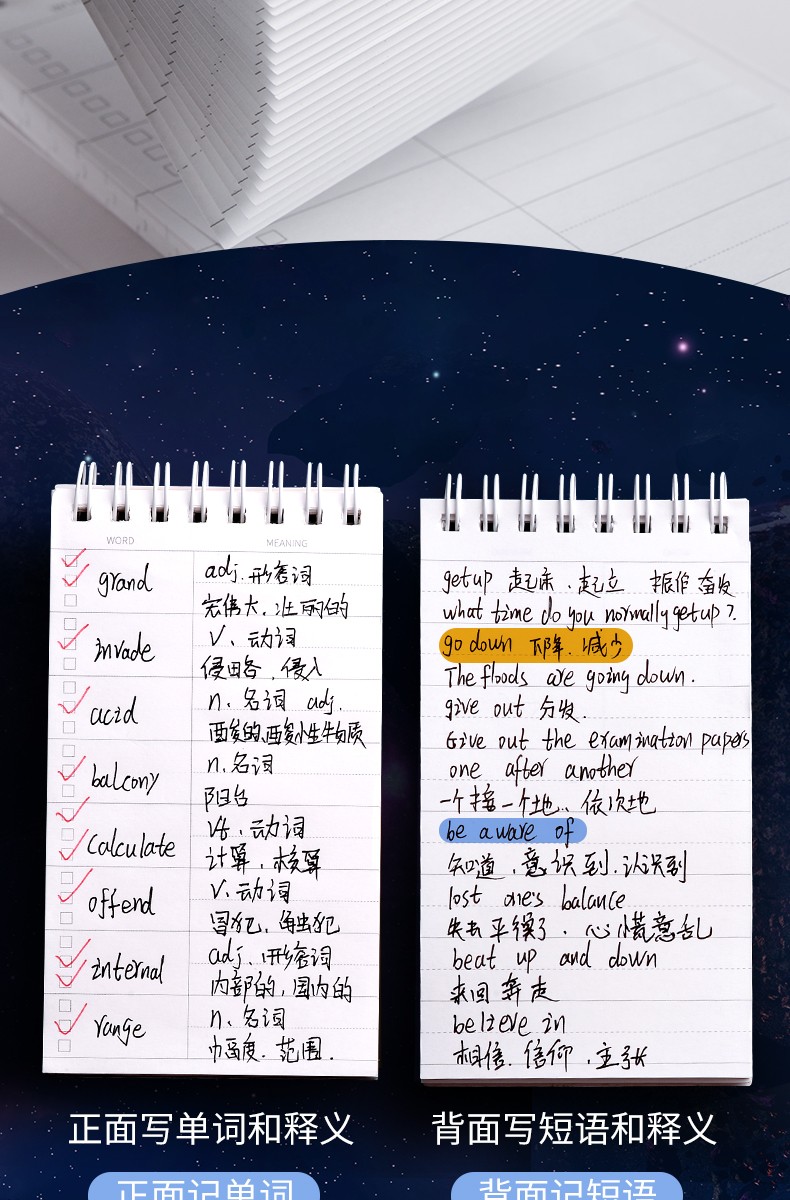 WORD MEANING
grand adj. 形容词
宏伟大、壮丽的
invade V、动词
侵田各, 侵入
acid n、名词 adj.
酉夋的、酉夋小生牛勿质
balcony n、名词
阳台
Calculate Vt、动词
计算、核算
offend V、动词
冒犯、触犯
internal adj、形容词
内部的, 国内的
range n、名词
幅度. 范围.
getup 起床、起立 振作奋发
what time do you normally getup?
go down 下降、减少
The floods are going down.
give out 分发.
Give out the examination papers
one after another
一个接一个地、依次地
be aware of
知道、意识到、认识到
lost one's balance
失去平衡了、心慌意乱
beat up and down
来回奔走
believe in
相信、信仰、主张
正面写单词和释义
背面写短语和释义
正面记单词
背面记短语